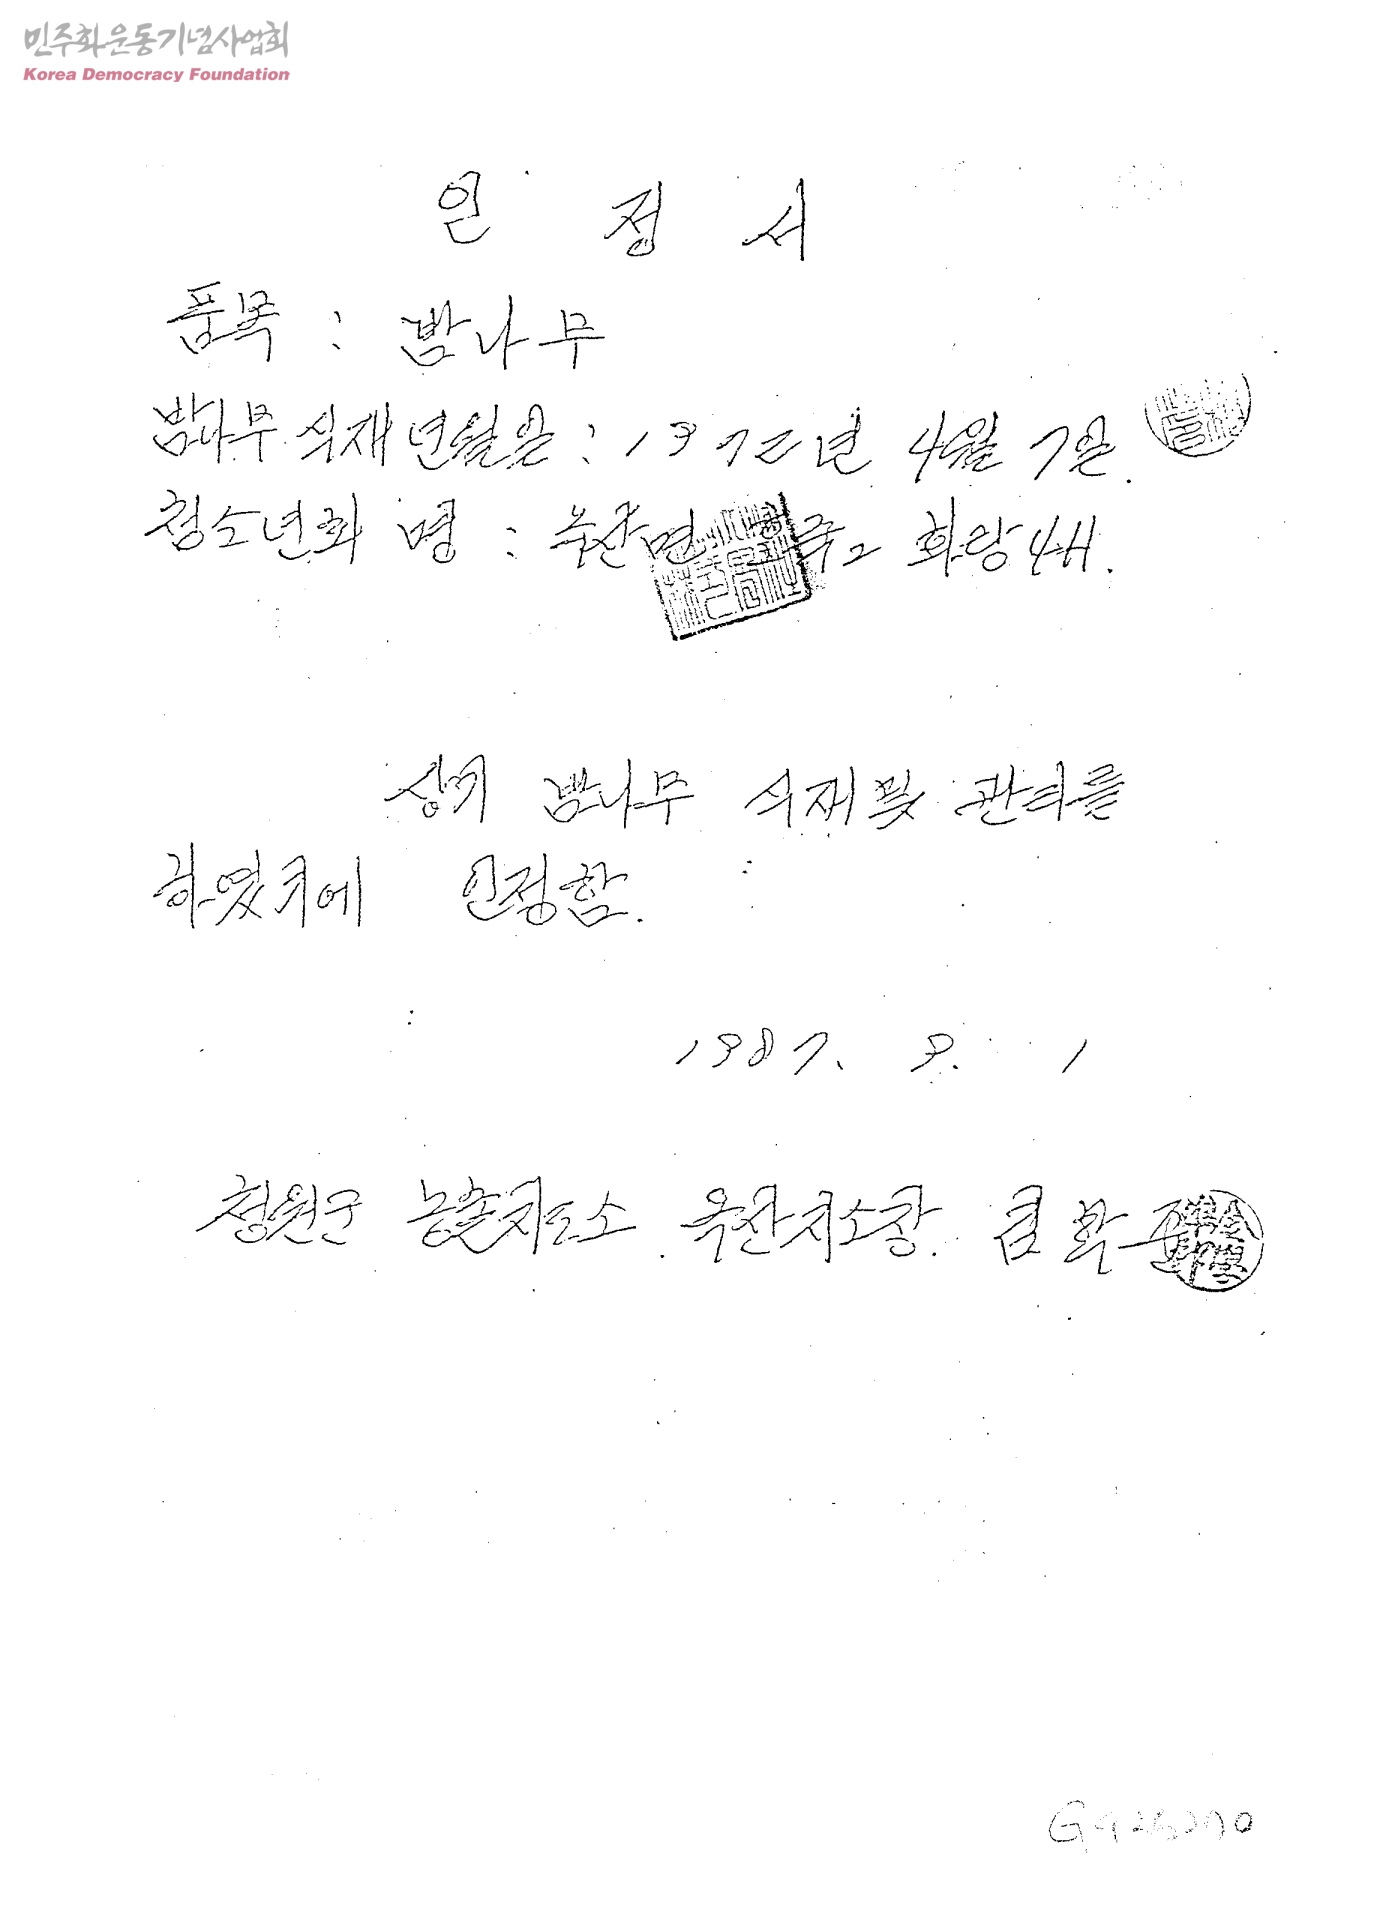 민주화운동기념사업회
Korea Democracy Foundation
인 정 서
품목 : 밤나무
밤나무 식재 년월일 : 1972년 4월 7일.
청소년회 명 : 옥산면 희망4H.
상기 밤나무 식재및 관리를
하였기에 인정함.
1987. 9. 1
청원군 농촌지도소 옥산지소장. 김학준